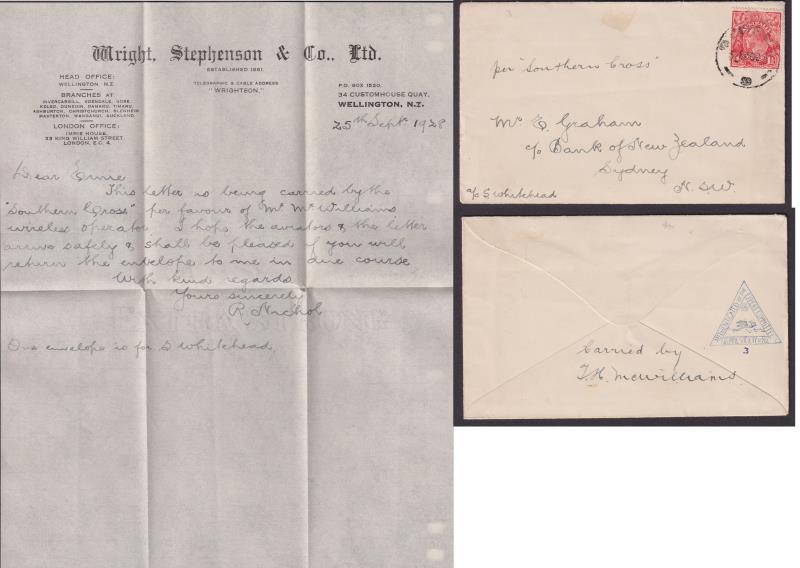 Wright, Stephenson & Co., Ltd.
ESTABLISHED 1861.
HEAD OFFICE:
WELLINGTON, N.Z.
BRANCHES AT
INVERCARGILL, EDENDALE, GORE,
KELSO, DUNEDIN, OAMARU, TIMARU,
ASHBURTON, CHRISTCHURCH, BLENHEIM
MASTERTON, WANGANUI, AUCKLAND.
LONDON OFFICE:
IMRIE HOUSE,
33 KING WILLIAM STREET,
LONDON, E.C. 4.
TELEGRAPHIC & CABLE ADDRESS
"WRIGHTSON."
P.O. BOX 1520,
34 CUSTOMHOUSE QUAY,
WELLINGTON, N.Z.
25th Septr 1928
Dear Ernie
This letter is being carried by the
"Southern Cross" per favour of Mr McWilliams
wireless operator. I hope the aviators & the letter
arrive safely & shall be pleased if you will
return the envelope to me in due course
With kind regards
Yours sincerely
R. Nichol
One envelope is for S Whitehead.
per "Southern Cross"
Mr E. Graham
c/o Bank of New Zealand
Sydney
N.S.W.
c/o S Whitehead
Carried by
T.H. McWilliams.
3